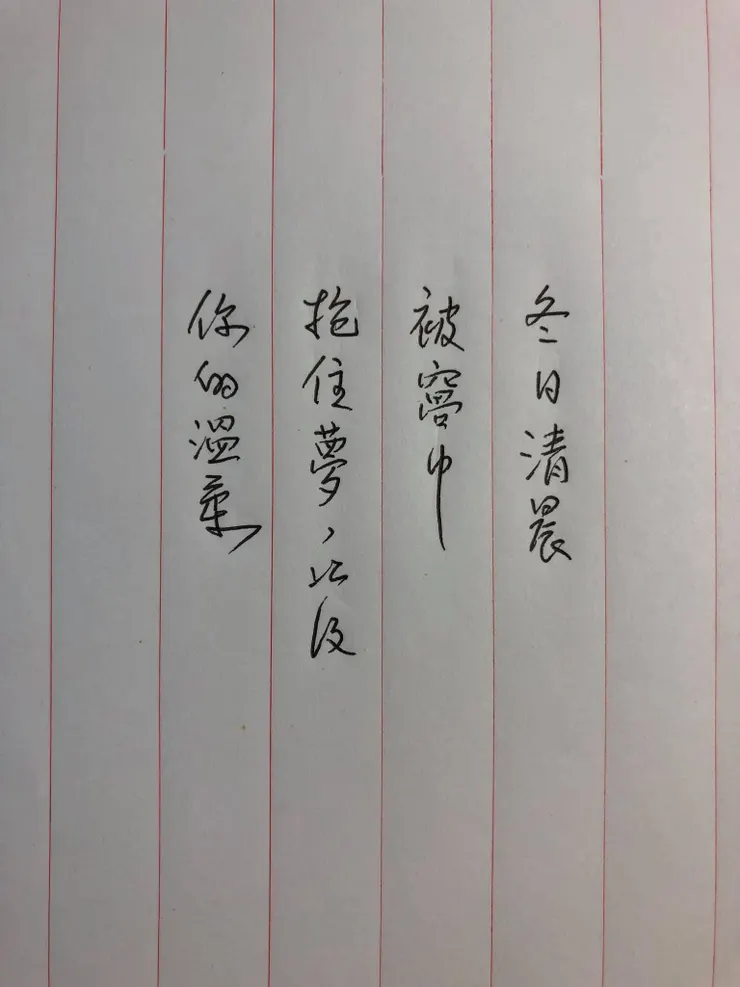 冬日清晨
被窩中
抱住夢、以及
你的溫柔